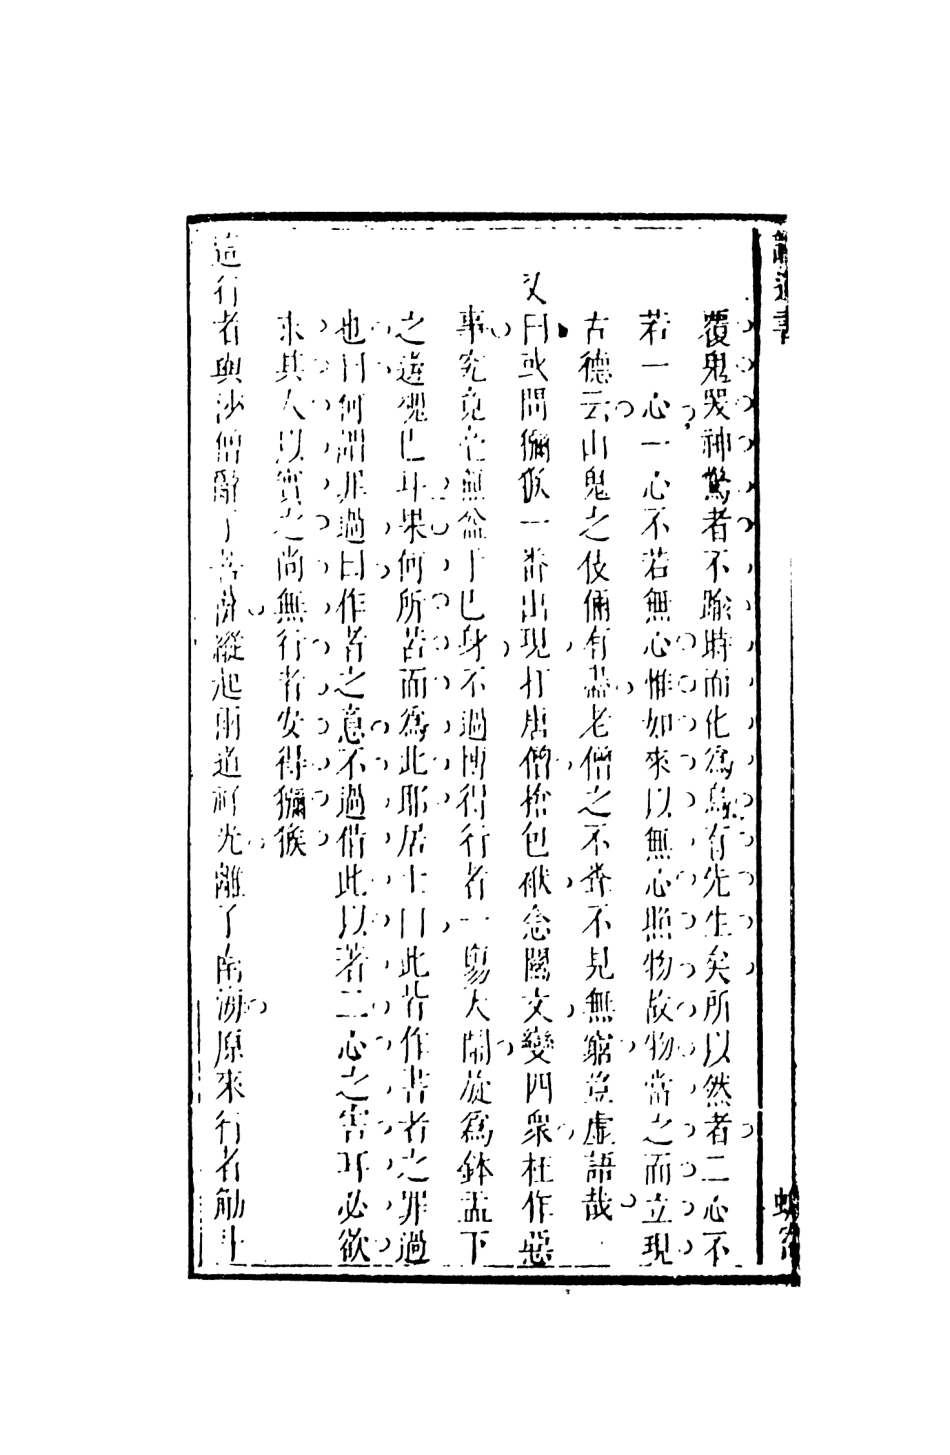 覆鬼哭神驚者不踰時而化為烏有先生矣所以然者二心不
若一心一心不若無心惟如來以無心照物故物當之而立現
古德云山鬼之伎倆有盡老僧之不聞不見無窮豈虛語哉
又曰或問獼猴一番出現打唐僧搶包袱念關文變四衆枉作惡
事究竟毫無益于己身不過博得行者一塲大鬧旋為鉢盂下
之遊魂已耳果何所苦而為此耶居士曰此皆作書者之罪過
也曰何謂罪過曰作者之意不過借此以著二心之害耳必欲
求其人以實之尚無行者安得獼猴
這行者與沙僧辭了菩薩縱起兩道祥光離了南海原來行者觔斗